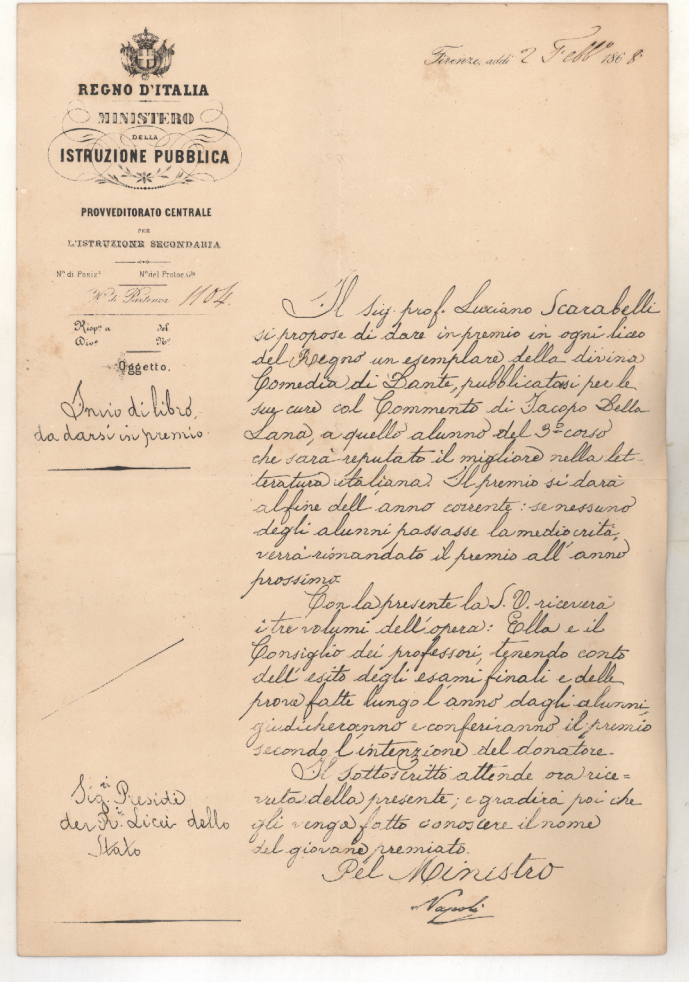 Firenze, addì 2 Febb.º 1868
REGNO D'ITALIA
MINISTERO
DELLA
ISTRUZIONE PUBBLICA
PROVVEDITORATO CENTRALE
PER
L'ISTRUZIONE SECONDARIA
Nº di Posizº Nº del Protoc.
Nº di Partenza 1104.
Rispª a del
Divº Nº
Oggetto.
Invio di libro,
da darsi in premio
Il sig. prof. Luciano Scarabelli
si propose di dare in premio in ogni liceo
del Regno un esemplare della divina
Comedia di Dante, pubblicatasi per le
sue cure col Commento di Jacopo Della
Lana, a quello alunno del 3º corso
che sarà reputato il migliore nella let-
teratura italiana. Il premio si darà
al fine dell'anno corrente: se nessuno
degli alunni passasse la mediocrità,
verrà rimandato il premio all'anno
prossimo.
Con la presente la S. V. riceverà
i tre volumi dell'opera: Ella e il
Consiglio dei professori, tenendo conto
dell'esito degli esami finali e delle
prove fatte lungo l'anno dagli alunni,
giudicheranno e conferiranno il premio
secondo l'intenzione del donatore.
Il sottoscritto attende ora rice=
vuta della presente; e gradirà poi che
gli venga fatto conoscere il nome
del giovane premiato.
Pel Ministro
Napoli
Sig.ri Presidi
dei R.i Licei dello
Stato